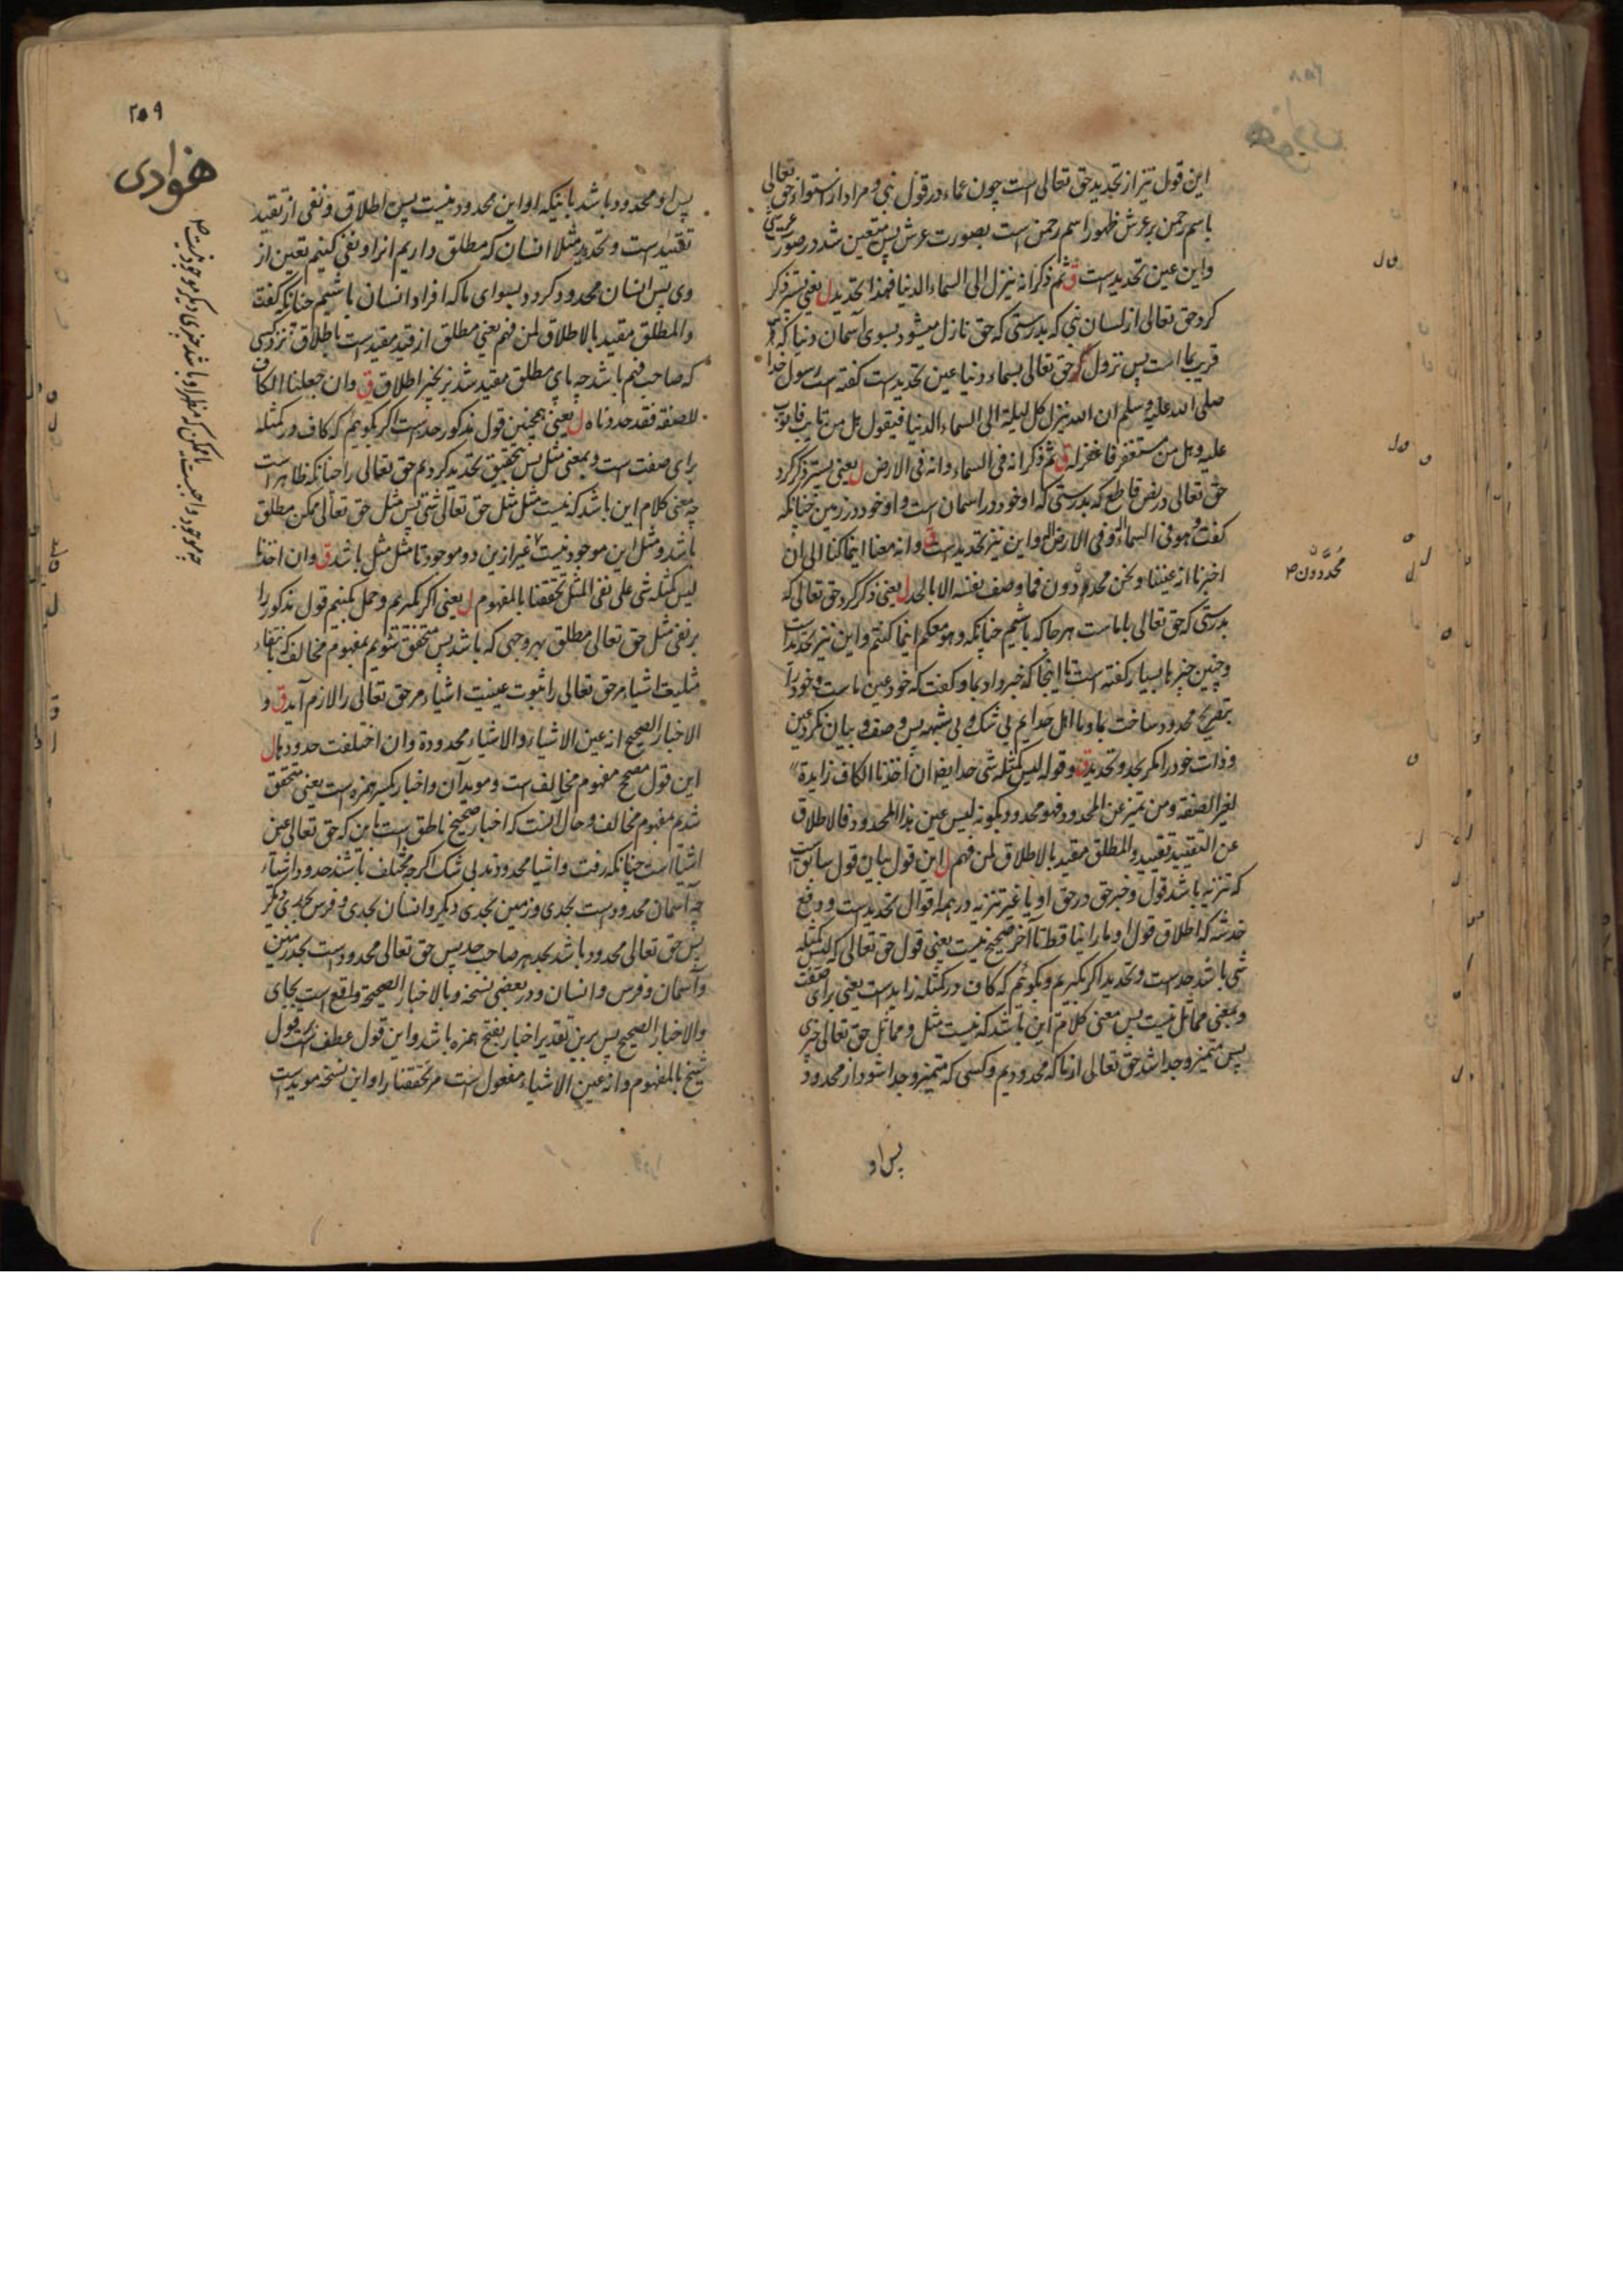 این قول نیز از تحدید حق تعالی است چون عماء در قول نبی و مراد از استواء حق تعالی
باسم رحمن بر عرش ظهور اسم رحمن است بصورت عرش پس متعین شد در صورت عرشی
و این عین تحدید ست ق ثم ذکر انه ینزل الی السماء الدنیا فهذا تحدید ل یعنی پستر ذکر
کرد حق تعالی از لسان نبی که بدرستی که حق نازل میشود بسوی آسمان دنیا که
قریب بما است پس نزول حق تعالی بسماء دنیا عین تحدید ست گفته است رسول خدا
صلی الله علیه وسلم ان الله ینزل کل لیلة الی السماء الدنیا فیقول هل من تایب فاتوب
علیه و هل من مستغفر فاغفر له ق ثم ذکر انه فی السماء و انه فی الارض ل یعنی پستر ذکر کرد
حق تعالی در نص قاطع که بدرستی که او خود در اسمان است و او خود در زمین چنانکه
گفت و هو فی السماء اله و فی الارض اله و این نیز تحدید است ق و انه معنا اینما کنا الی ان
اخبرنا انه عیننا و نحن محدودون فما وصف نفسه الا بالحد ل یعنی ذکر کرد حق تعالی که
محدودون
بدرستی که حق تعالی با ماست هر جا که باشیم چنانکه و هو معکم اینما کنتم و این نیز تحدید است
و چنین چیزها بسیار گفته است تا اینجا که خبر داد بما و گفت که خود عین ماست و خود را
بتصریح محدود ساخت بما و ما اهل حدایم بی شک و بی شبهه پس وصف و بیان نکرد عین
و ذات خود را مگر بحد و تحدید ق و قوله لیس کمثله شی حد ایضا ان اخذنا الکاف زایدة
لغیر الصفة و من تمیز عن المحدود فهو محدود بکونه لیس عین هذا المحدود فالاطلاق
عن التقیید تقیید و المطلق مقید بالاطلاق لمن فهم ل این قول بیان قول سابق است
که تنزیه باشد قول و خبر حق در حق او یا غیر تنزیه در همه اقوال تحدید ست و دفع
خدشه که اطلاق قول او ما راینا قط تا آخر صحیح نیست یعنی قول حق تعالی که لیس کمثله
شی باشد حد ست و تحدید اگر بگیریم و بگوئیم که کاف در کمثله زاید ست یعنی برای صفت
و بمعنی مماثل نیست پس معنی کلام این باشد که نیست مثل و مماثل حق تعالی چیزی
پس متمیز و جدا شد حق تعالی از ما که محدودیم و کسی که متمیز و جدا شود از محدود
پس او
۲۵۹
پس او محدود باشد باینکه او این محدود نیست پس اطلاق و نفی از تقید
تقیید ست و تحدید مثلا انسان که مطلق داریم انرا و نفی کنیم تعین از
وی پس انسان محدود گردد بسوای ما که افراد انسان باشیم چنانکه گفته
و المطلق مقید بالاطلاق لمن فهم یعنی مطلق از قید مقید ست باطلاق نزد کسی
که صاحب فهم باشد چه پای مطلق مقید شد بزنجیر اطلاق ق و ان جعلنا الکاف
للصفة فقد حددناه ل یعنی همچنین قول مذکور حد ست اگر بگوئیم که کاف در کمثله
برای صفت است و بمعنی مثل پس بتحقیق تحدید کردیم حق تعالی را چنانکه ظاهر است
چه معنی کلام این باشد که نیست مثل مثل حق تعالی شی پس مثل حق تعالی ممکن مطلق
باشد و مثل این موجود نیست غیر ازین دو موجود تا مثل مثل باشد ق و ان اخذنا
لیس کمثله شی علی نفی المثل تحققنا بالمفهوم ل یعنی اگر بگیریم و حمل بکنیم قول مذکور را
بر نفی مثل حق تعالی مطلق بهر وجهی که باشد پس متحقق شویم بمفهوم مخالف که بانتفاء
مثلیت اشیاء مر حق تعالی را ثبوت عینیت اشیاء مر حق تعالی را لازم آید ق و
الاخبار الصحیح انه عین الاشیاء و الاشیاء محدودة و ان اختلفت حدودها ل
این قول مصحح مفهوم مخالف ست و موید آن و اخبار بکسر همزه است یعنی متحقق
شدیم بمفهوم مخالف و حال آنست که اخبار صحیح ناطق است باین که حق تعالی عین
اشیا است چنانکه رفت و اشیا محدودند بی شک اگرچه مختلف باشند حدود اشیاء
چه آسمان محدود ست بحدی و زمین بحدی دیگر و انسان بحدی و فرس بحدی دیگر
پس حق تعالی محدود باشد بحد هر صاحب حد پس حق تعالی محدود ست بحد زمین
و آسمان و فرس و انسان و در بعضی نسخه و بالاخبار الصحیحة واقع است بجای
و الاخبار الصحیح پس برین تقدیر اخبار بفتح همزه باشد و این قول عطف ست بر قول
شیخ بالمفهوم و انه عین الاشیاء مفعول است مر تحققنا را و این نسخه موید ست
چه موجود واجبست یا ممکن که مظهر او باشد چیزی دیگر موجود نیست